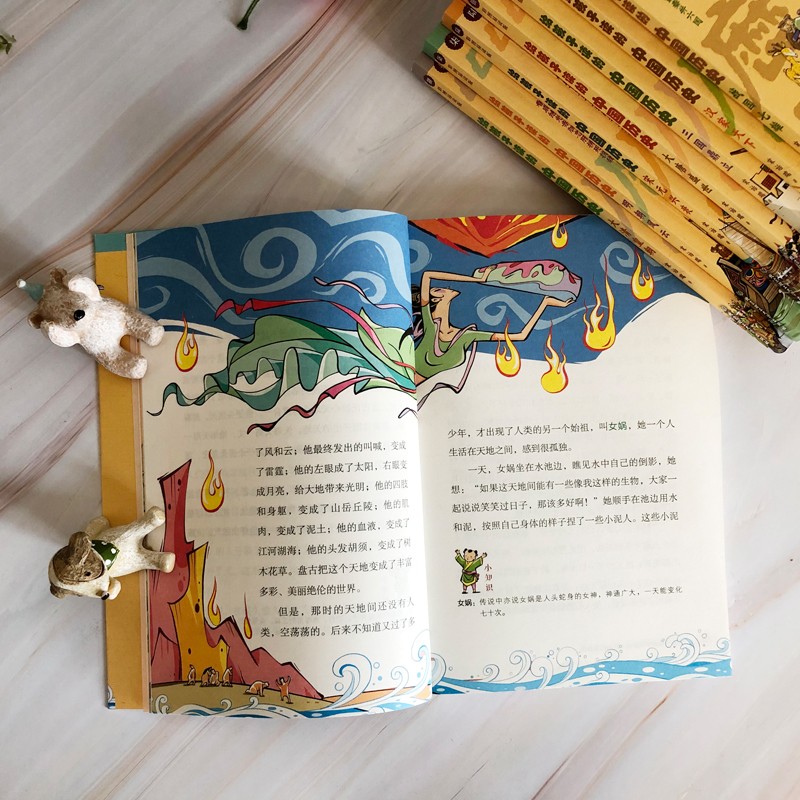 了风和云；他最终发出的叫喊，变成
了雷霆；他的左眼成了太阳，右眼变
成月亮，给大地带来光明；他的四肢
和身躯，变成了山岳丘陵；他的肌
肉，变成了泥土；他的血液，变成了
江河湖海；他的头发胡须，变成了树
木花草。盘古把这个天地变成了丰富
多彩、美丽绝伦的世界。
但是，那时的天地间还没有人
类，空荡荡的。后来不知道又过了多
少年，才出现了人类的另一个始祖，叫女娲，她一个人
生活在天地之间，感到很孤独。
一天，女娲坐在水池边，瞧见水中自己的倒影，她
想：“如果这天地间能有一些像我这样的生物，大家一
起说说笑笑过日子，那该多好啊！”她顺手在池边用水
和泥，按照自己身体的样子捏了一些小泥人。这些小泥
小知识
女娲：传说中亦说女娲是人头蛇身的女神，神通广大，一天能变化
七十次。
给孩子读的中国历史
给孩子读的中国历史 汉家天下
给孩子读的中国历史 三国鼎立
给孩子读的中国历史 大唐盛世
给孩子读的中国历史
给孩子读的中国历史